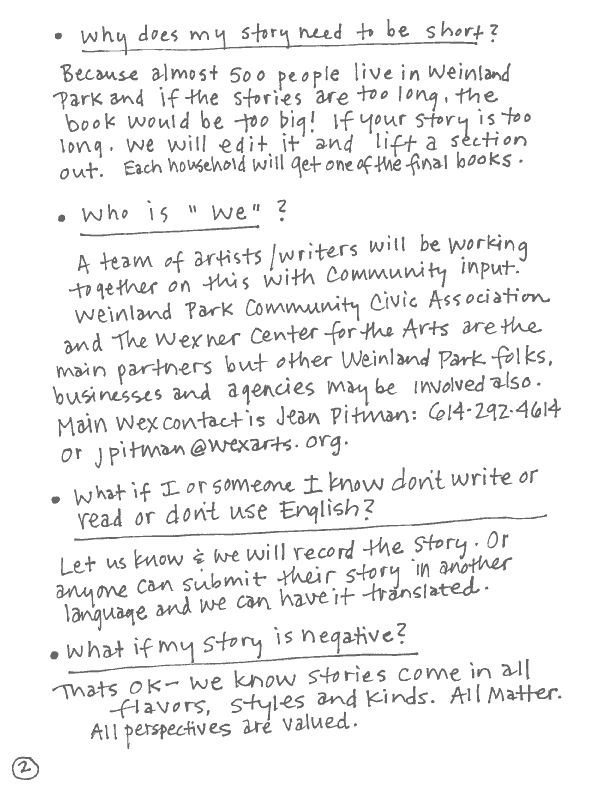 • Why does my story need to be short?
Because almost 500 people live in Weinland
Park and if the stories are too long, the
book would be too big! If your story is too
long, we will edit it and lift a section
out. Each household will get one of the final books.
• Who is "We"?
A team of artists/writers will be working
together on this with Community input.
Weinland Park Community Civic Association
and The Wexner Center for the Arts are the
main partners but other Weinland Park folks,
businesses and agencies may be involved also.
Main Wex contact is Jean Pitman: 614-292-4614
or jpitman@wexarts.org.
• What if I or someone I know don't write or
read or don't use English?
Let us know & we will record the story. Or
anyone can submit their story in another
language and we can have it translated.
• What if my story is negative?
Thats OK - we know stories come in all
flavors, styles and kinds. All Matter.
All perspectives are valued.
2